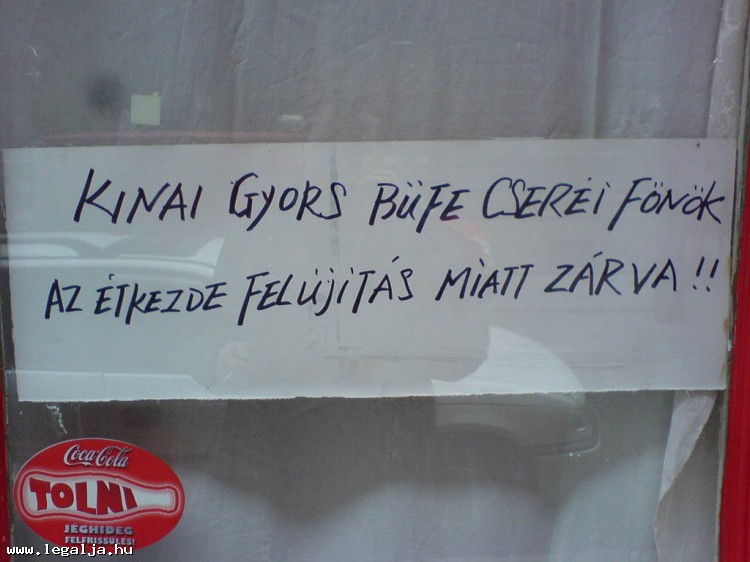 KINAI GYORS BÜFE CSERÉI FÖNÖK
AZ ÉTKEZDE FELÚJITÁS MIATT ZÁRVA!!
Coca-Cola
TOLNI
JÉGHIDEG
FELFRISSÜLÉS!
www.legalja.hu